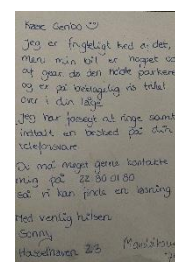 Kære Genbo
Jeg er frygteligt ked af det,
men min bil er hoppet ud
af gear da den holdt parkeret
og er på beklagelig vis trillet
over i din låge
Jeg har forsøgt at ringe samt
indtalt en besked på din
telefonsvarer
Du må meget gerne kontakte
mig på 22 80 01 80
så vi kan finde en løsning
Med venlig hilsen
Sonny
23